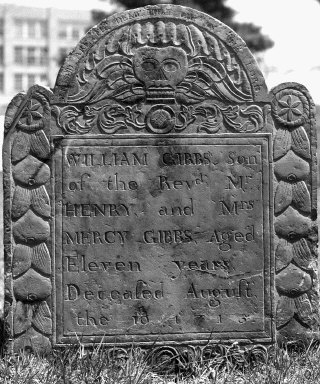 WILLIAM GIBBS, Son
of the Revd Mr.
HENRY, and Mrs
MERCY GIBBS, Aged
Eleven years
Deceased August
the 10 1715